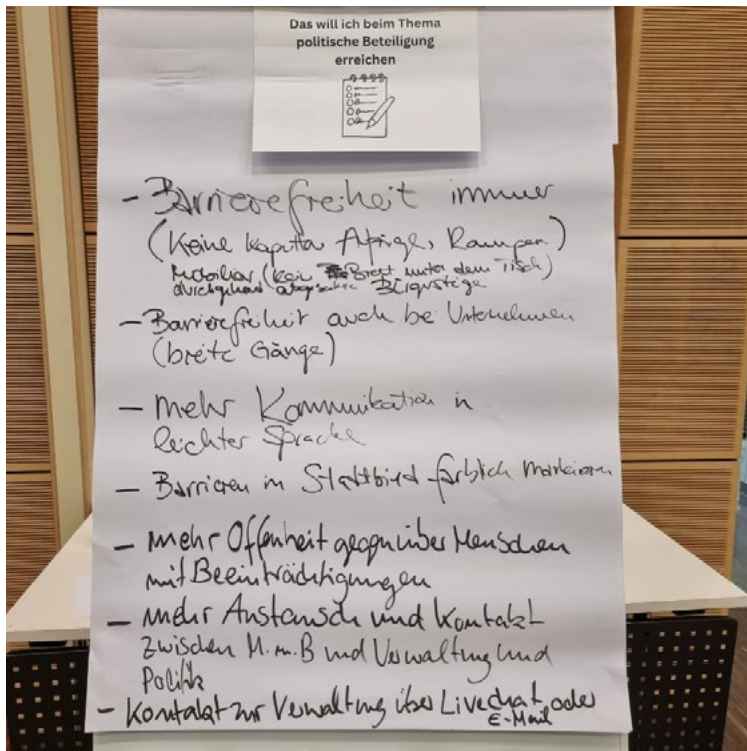 Das will ich beim Thema
politische Beteiligung
erreichen
- Barrierefreiheit immer
(Keine kaputten Aufzüge, Rampen)
Mobiliar (kein Brett unter dem Tisch)
durchgehend abgesenkte Bürgersteige
- Barrierefreiheit auch be Unternehmen
(breite Gänge)
- mehr Kommunikation in
leichter Sprache
- Barrieren im Stadtbild farblich markieren
- mehr Offenheit gegenüber Menschen
mit Beeinträchtigungen
- mehr Austausch und Kontakt
zwischen M.m.B und Verwaltung und
Politik
- Kontakt zur Verwaltung über Livechat oder
E-Mail